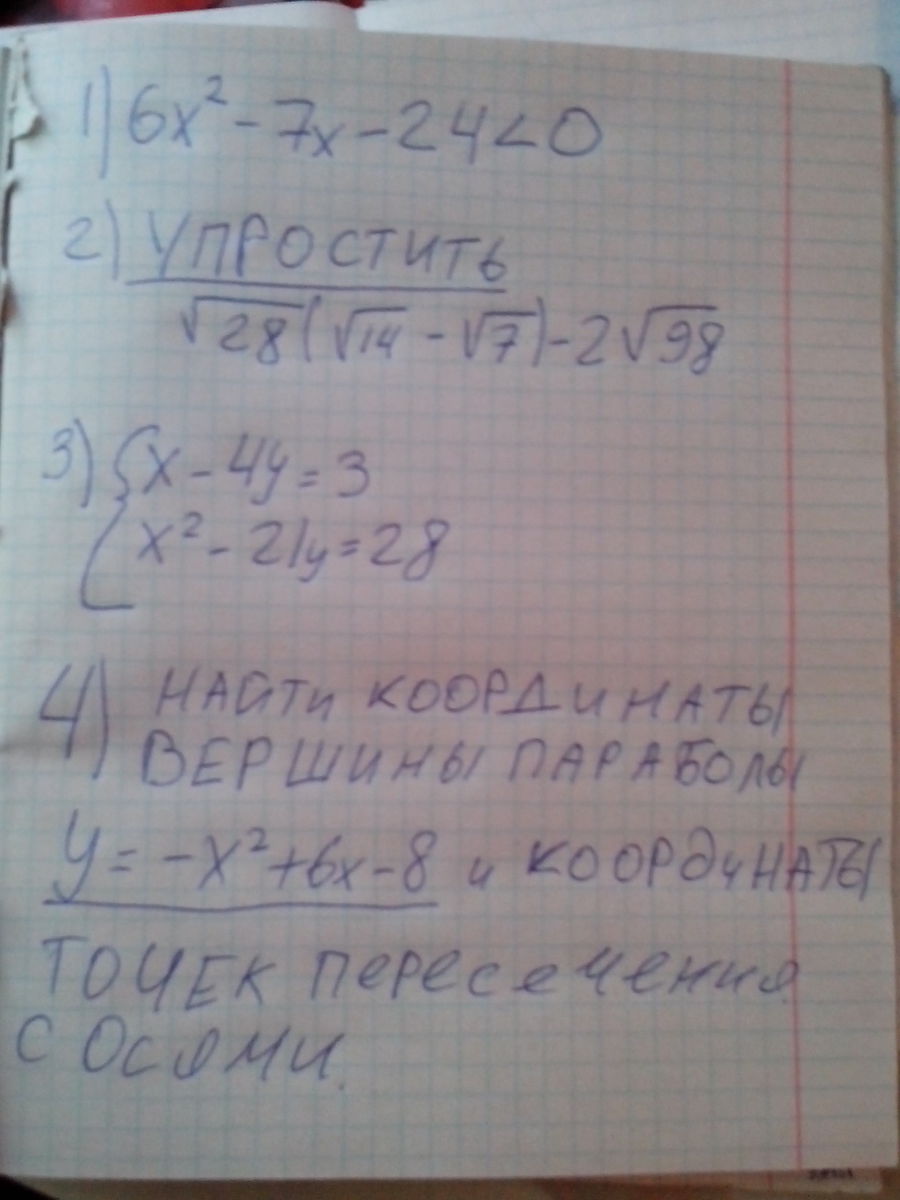 1) 6x² - 7x - 24 < 0
2) УПРОСТИТЬ
√28(√14 - √7) - 2√98
3) { x - 4y = 3
x² - 21y = 28
4) НАЙТИ КООРДИНАТЫ
ВЕРШИНЫ ПАРАБОЛЫ
y = -x² + 6x - 8 и КООРДИНАТЫ
ТОЧЕК пересечения
С Осями.